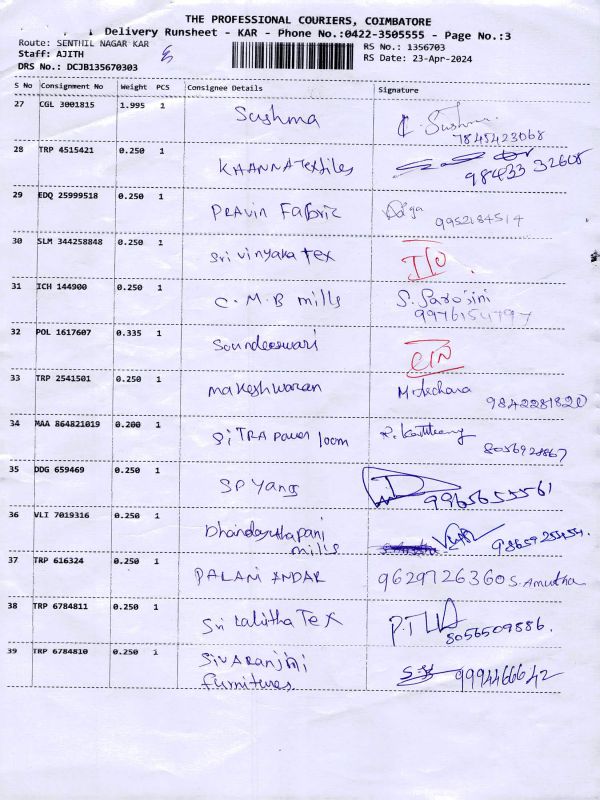 THE PROFESSIONAL COURIERS, COIMBATORE
Delivery Runsheet - KAR - Phone No.:0422-3505555 - Page No.:3
Route: SENTHIL NAGAR KAR
RS No.: 1356703
Staff: AJITH
RS Date: 23-Apr-2024
DRS No.: DCJB135670303
S No Consignment No Weight PCS Consignee Details Signature
27 CGL 3001815 1.995 1 Sushma K. Sushma
7845423068
28 TRP 4515421 0.250 1 KHANNA Textiles 98433 32608
29 EDQ 25999518 0.250 1 PRAVIN Fabric 9952184514
30 SLM 344258848 0.250 1 Sri Vinyaka Tex
31 ICH 144900 0.250 1 C.M.B mills S. Sarojini
9976154797
32 POL 1617607 0.335 1 Soundeeswari
33 TRP 2541501 0.250 1 makeshwaran 9842281820
34 MAA 864821019 0.200 1 SiTRA power loom 8056928867
35 DDG 659469 0.250 1 SP Yang 9965655561
36 VLI 7019316 0.250 1 Dhandayuthapani
mills
37 TRP 616324 0.250 1 PALANI ANDAR 9629726360 S. Amutha
38 TRP 6784811 0.250 1 Sri Lalitha Tex 8056509886.
39 TRP 6784810 0.250 1 SIVARANJINI
furnitures 9994466642